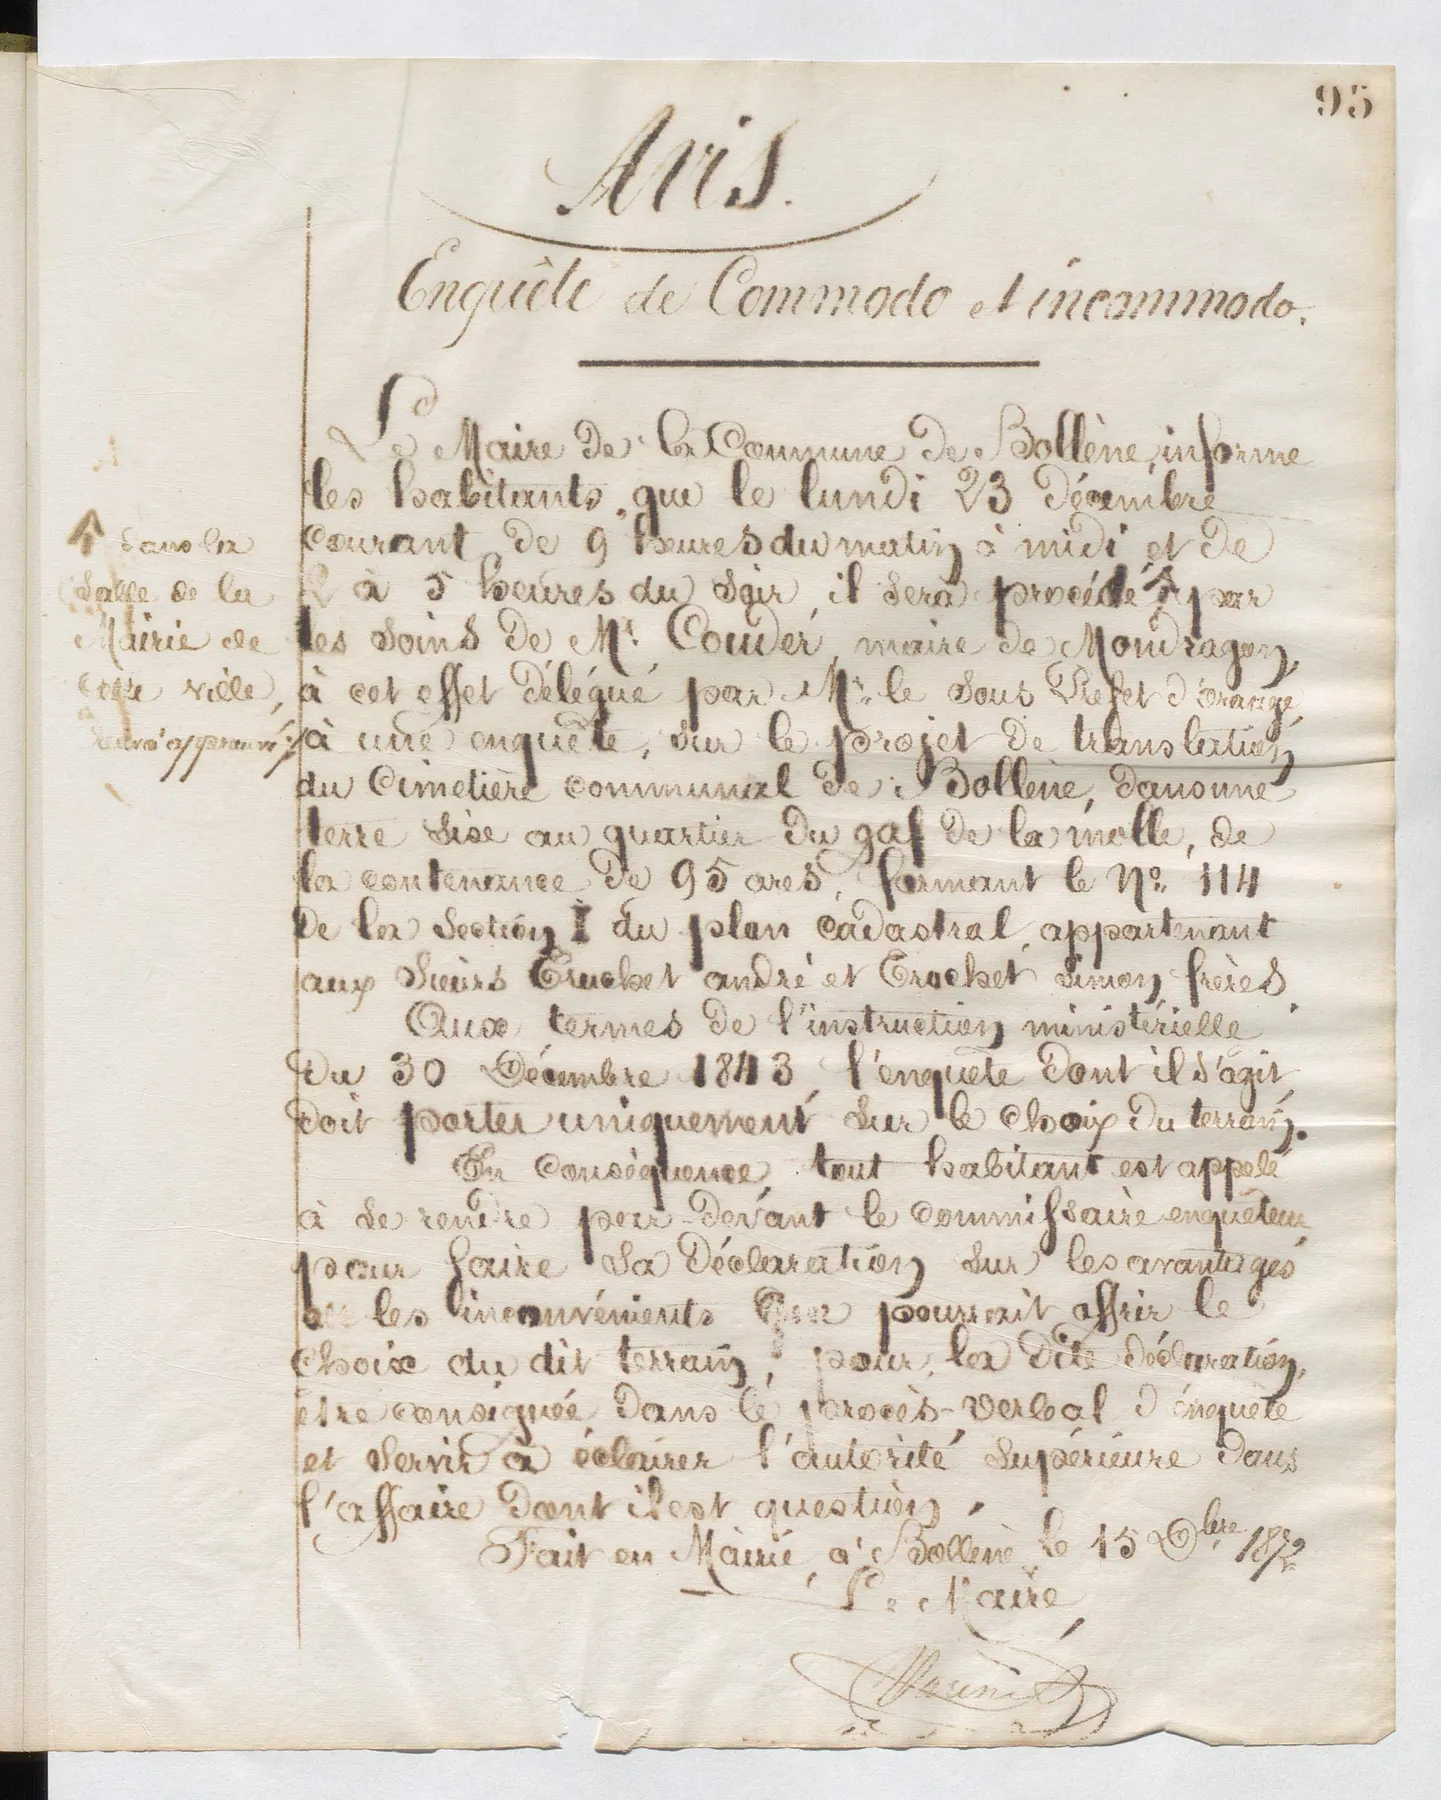 95
Avis.
Enquête de Commodo et incommodo.
Le Maire de la Commune de Bollène, informe
les habitants, que le lundi 23 décembre
courant de 9 heures du matin à midi et de
2 à 5 heures du soir, il sera procédé ↑ par
les soins de Mr. Couder, maire de Mondragon,
à cet effet délégué par Mr. le Sous Préfet d'orange,
à une enquête, sur le projet de translation
du Cimetière communal de Bollène, dans une
terre sise au quartier du gaf de la molle, de
la contenance de 95 ares, formant le No. 114
de la section I du plan cadastral, appartenant
aux sieurs Truchet andré et Truchet simon frères.
Aux termes de l'instruction ministérielle
du 30 Décembre 1843, l'enquête dont il s'agit
doit porter uniquement sur le choix du terrain.
En conséquence, tout habitant est appelé
à se rendre par-devant le commissaire enquêteur
pour faire sa déclaration sur les avantages
ou les inconvénients que pourrait offrir le
choix du dit terrain, pour, la dite déclaration,
être consignée dans le procès-verbal d'enquête
et servir à éclairer l'autorité supérieure dans
l'affaire dont il est question.
Fait en Mairie, à Bollène le 15 Xbre 1872
Le Maire,
↑ dans la
salle de la
Mairie de
cette ville,
renvoi approuvé